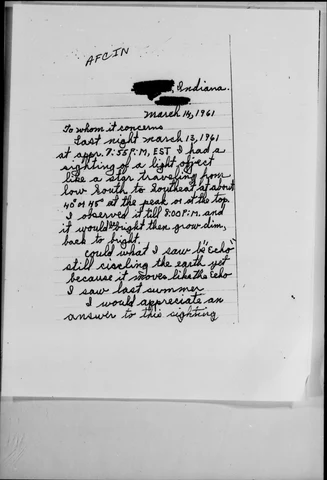 AFCIN
, Indiana.
March 14, 1961
To whom it concerns
Last night march 13, 1961
at appr. 7:55 P.M, EST I had a
sighting of a light object
like a star traveling from
low South to Southeast at about
40° or 45° at the peak or at the top
I observed it till 8:00 P.M. and
it would be bright then grow dim,
back to bight.
Could what I saw be "Echo"
still circling the earth yet
because it moves like the Echo
I saw last summer
I would appreciate an
answer to this sighting